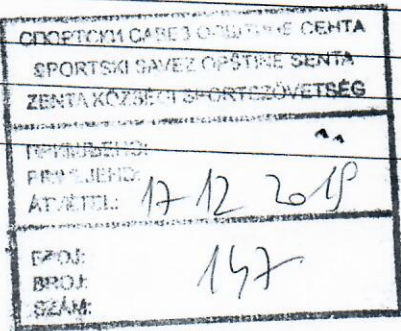 СПОРТСКИ САВЕЗ ОПШТИНЕ СЕНТА
SPORTSKI SAVEZ OPŠTINE SENTA
ZENTA KÖZSÉGI SPORTSZÖVETSÉG
ПРИМЉЕНО:
PRIMLJENO:
ÁTVÉTEL: 17 12 2019
БРОЈ:
BROJ: 147
SZÁM: